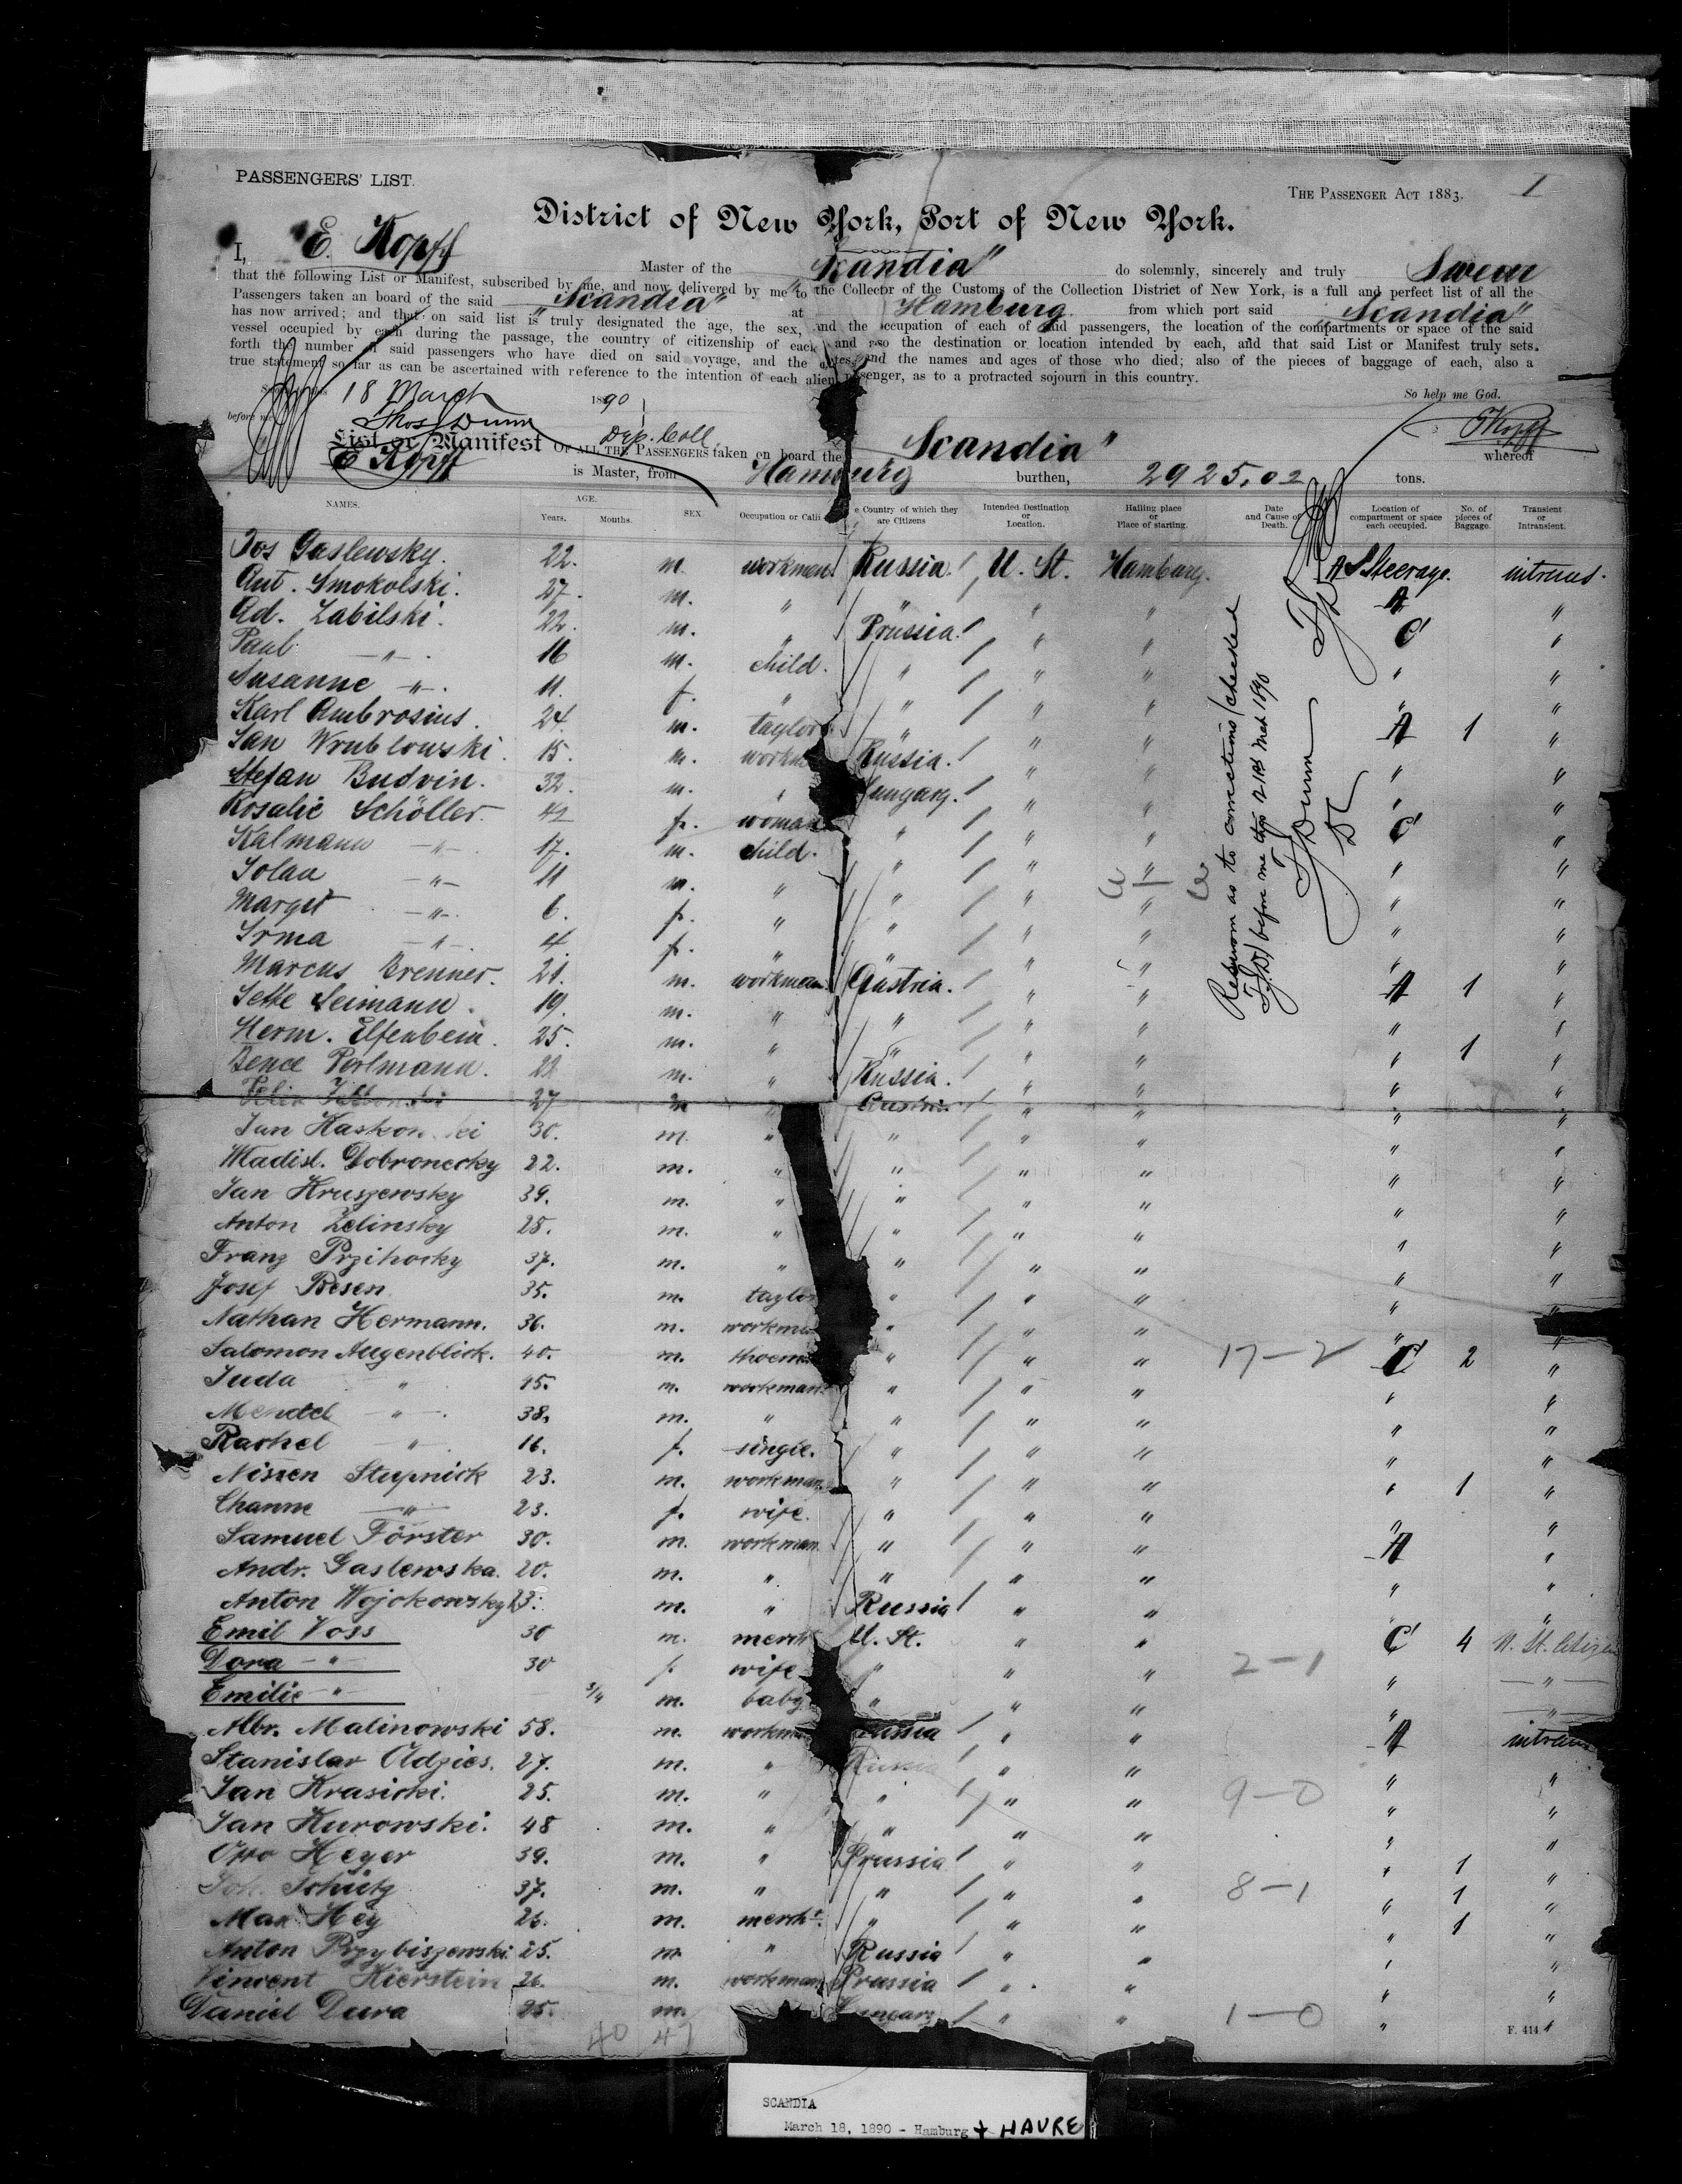 PASSENGERS' LIST.
THE PASSENGER ACT 1883.
1
District of New York, Port of New York.
I, E. Kopff Master of the "Scandia" do solemnly, sincerely and truly Swear
that the following List or Manifest, subscribed by me, and now delivered by me to the Collector of the Customs of the Collection District of New York, is a full and perfect list of all the
Passengers taken on board of the said "Scandia" at Hamburg from which port said "Scandia"
has now arrived; and that on said list is truly designated the age, the sex, and the occupation of each of said passengers, the location of the compartments or space of the said
vessel occupied by each during the passage, the country of citizenship of each and also the destination or location intended by each, and that said List or Manifest truly sets
forth the number of said passengers who have died on said voyage, and the dates and the names and ages of those who died; also of the pieces of baggage of each, also a
true statement so far as can be ascertained with reference to the intention of each alien passenger, as to a protracted sojourn in this country.
So help me God.
18 March 1890
before me
Thos Dunn
Dep. Coll.
E Kopff
List or Manifest OF ALL THE PASSENGERS taken on board the Scandia" whereof
E Kopff is Master, from Hamburg burthen, 2925,02 tons.
NAMES. AGE. Years. Months. SEX. Occupation or Calli Country of which they are Citizens Intended Destination or Location. Hailing place or Place of starting. Date and Cause of Death. Location of compartment or space each occupied. No. of pieces of Baggage. Transient or Intransient.
Jos Gaslewsky. 22. m. workmen Russia. / U. St. Hamburg. A S Steerage. intrans.
Ant. Smokolski. 27. m. " " / " " A "
Ad. Zabilski. 22. m. " Prussia. / " " C "
Paul —"—. 16 m. child. " / " " " "
Susanne —"—. 11. f. " " / " " " "
Karl Ambrosius. 24. m. taylor " / " " A 1 "
Jan Wrublowski. 15. m. workm Russia. / " " " "
Stefan Budvin. 32. m. " Hungary. / " " " "
Rosalie Schöller. 42 f. woman " / " " C "
Kalmann —"—. 17. m. child. " / " " " "
Jolan —"— 11 m. " " / " " " "
Margit —"—. 6. f. " " / " " " "
Irma —"—. 4. f. " " / " " " "
Marcus Brenner. 21. m. workman Austria. / " " A 1 "
Jette Leimann. 19. m. " " / " " " "
Herm. Elfenbein. 25. m. " " / " " " 1 "
Bence Perlmann. 22 m. " Russia. / " " " "
27 m " Austria / " " " "
Jan 30. m. " " / " " " "
Wladisl. Dobronecky 22. m. " " / " " " "
Jan Kruszewsky 39. m. " " / " " " "
Anton Zelinsky 25. m. " " / " " " "
Franz Przihocky 37. m. " " / " " " "
Josef Besen 35. m. taylor " / " " " "
Nathan Hermann. 36. m. workman " / " " " "
Salomon Augenblick. 40. m. " / " " 17—2 C 2 "
Juda " 15. m. workman " / " " " "
Mendel —"—. 38. m. " " / " " " "
Rachel " 16. f. single. " / " " " "
Nissen Stupnick 23. m. workman " / " " " 1 "
Channe —"— 23. f. wife. " / " " " "
Samuel Förster 30. m. workman " / " " A "
Andr. Gaslewska. 20. m. " " / " " " "
Anton Wojokowsky 23. m. " Russia / " " " "
Emil Voss 30 m. merch U. St. " " C 4 U. St. Citizen
Dora —"— 30 f. wife " " " 2—1 " —"—
Emilie —"— 3/4 m. baby " " " " —"—
Abr. Malinowski 58. m. workman Russia / " " A intrans
Stanislav Adzics. 27. m. " Russia / " " " "
Jan Krasicki. 25. m. " " / " " 9—0 " "
Jan Kurowski. 48 m. " " / " " " "
Otto Heyer 39. m. " Prussia / " " " 1 "
Joh. Schütz 37. m. " " / " " 8—1 " 1 "
Max Hey 26. m. mercht. " / " " " 1 "
Anton Przybiszewski. 25. m " Russia / " " " "
Vincent Kierstein 26. m. workman Prussia / " " " "
Daniel Dura 25. m. Hungary / " " 1—0 " "
40 47
F. 414
Resworn as to corrections (checked
T.D.) before me this 21st Mch 1890
T Dunn
DC
SCANDIA
March 18, 1890 - Hamburg + HAVRE